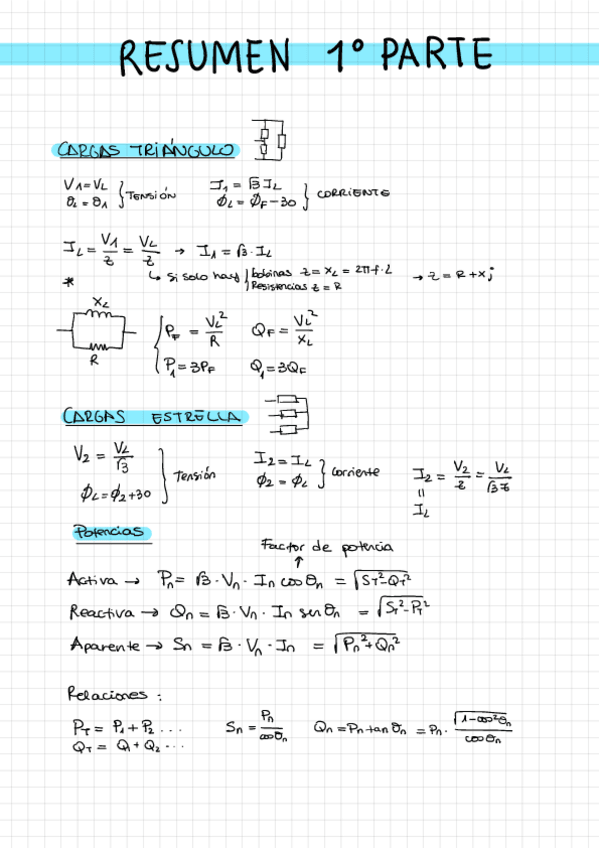 RESUMEN 1º PARTE
CARGAS TRIÁNGULO
V1 = VL } Tensión I1 = √3 IL } CORRIENTE
θL = θ1 ϕL = ϕF - 30
IL = V1/z = VL/z → I1 = √3 · IL
* ↳ Si solo hay { bobinas z = XL = 2πf·L → z = R + Xj
Resistencias z = R
XL
R
PF = VL²/R QF = VL²/XL
P1 = 3PF Q1 = 3QF
CARGAS ESTRELLA
V2 = VL/√3 } Tensión I2 = IL } Corriente I2 = V2/z = VL/√3 z
ϕL = ϕ2 + 30 ϕ2 = ϕL = IL
Potencias
Factor de potencia
↑
Activa → Pn = √3 · Vn · In cos θn = √ST² - QT²
Reactiva → Qn = √3 · Vn · In sen θn = √ST² - PT²
Aparente → Sn = √3 · Vn · In = √Pn² + Qn²
Relaciones :
PT = P1 + P2 ... Sn = Pn/cosθn Qn = Pn tan θn = Pn · √1 - cos²θn/cos θn
QT = Q1 + Q2 ...